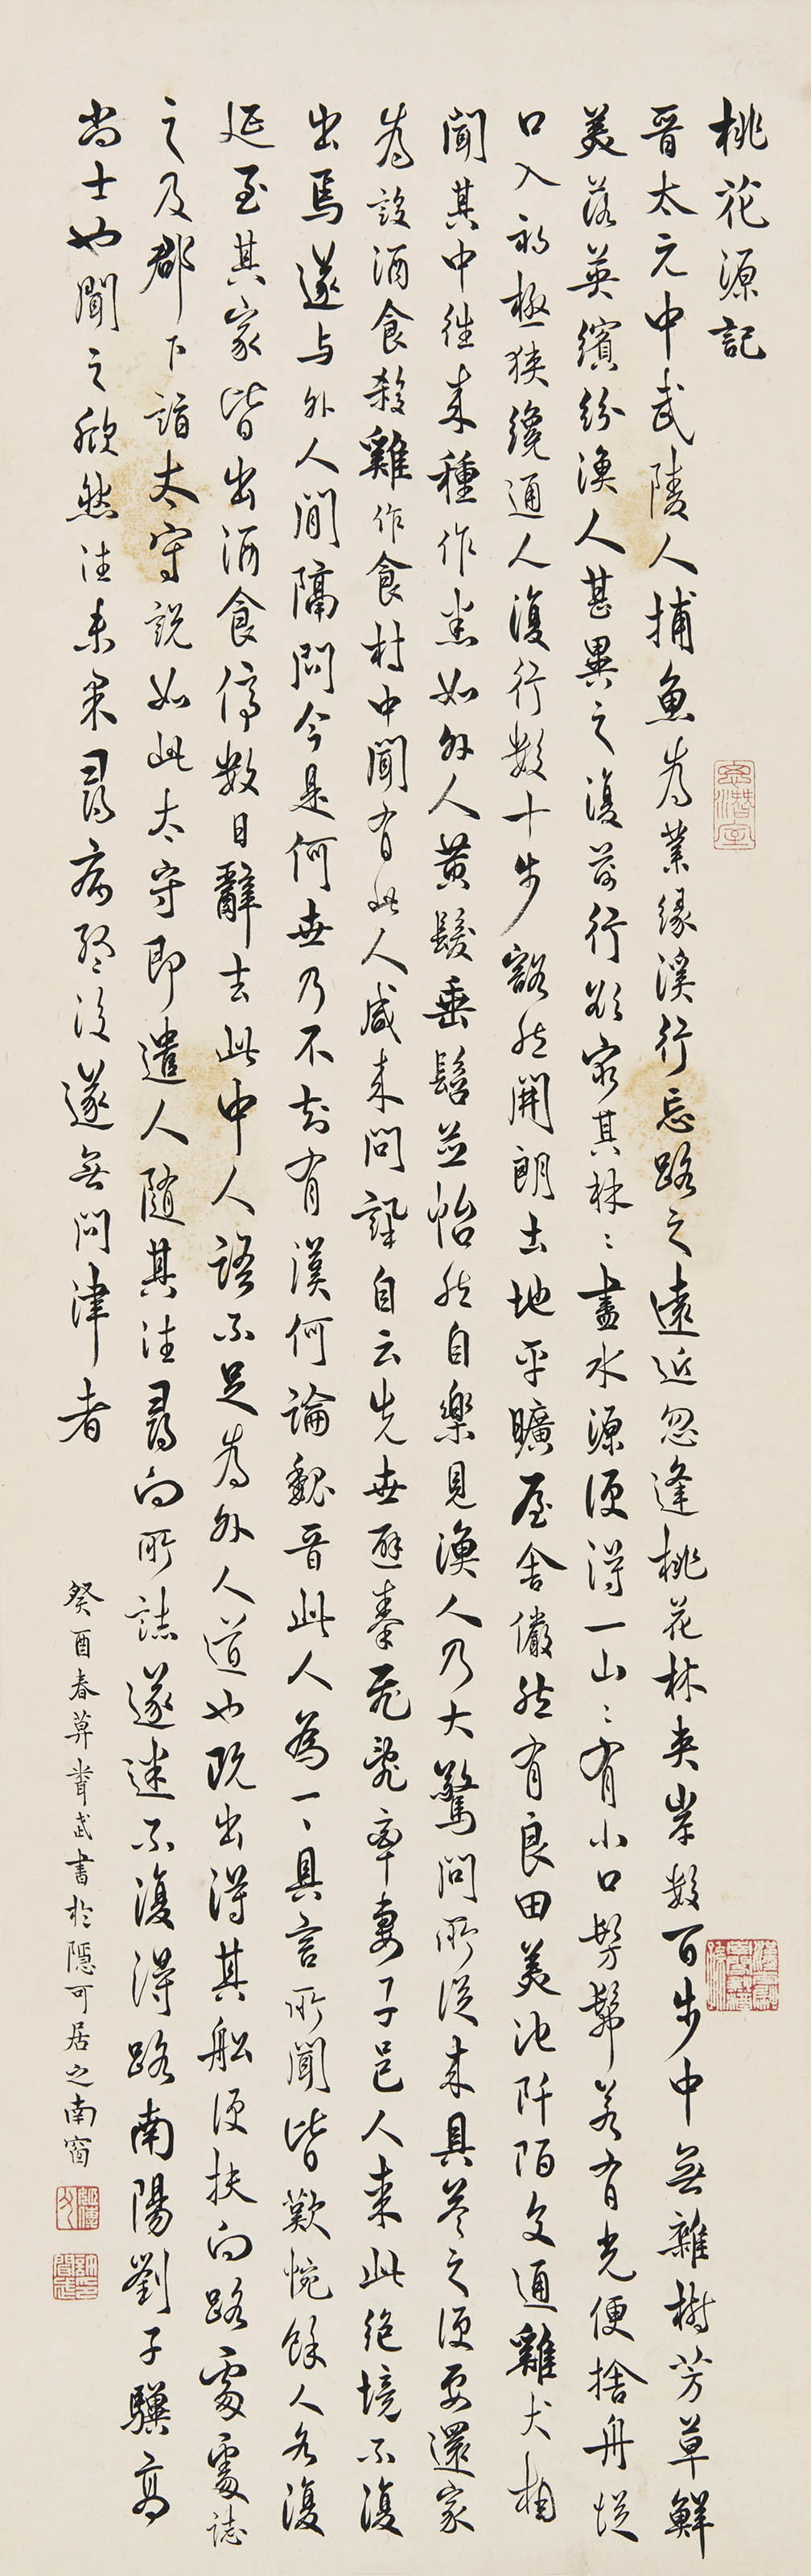 桃花源記
晉太元中武陵人捕魚為業緣溪行忘路之遠近忽逢桃花林夾岸數百步中無雜樹芳草鮮
美落英繽紛漁人甚異之復前行欲窮其林〻盡水源便得一山〻有小口髣髴若有光便捨舟從
口入初極狹纔通人復行數十步豁然開朗土地平曠屋舍儼然有良田美池阡陌交通雞犬相
聞其中往來種作悉如外人黃髮垂髫並怡然自樂見漁人乃大驚問所從來具答之便要還家
為設酒食殺雞作食村中聞有此人咸來問訊自云先世避秦亂率妻子邑人來此絕境不復
出焉遂与外人間隔問今是何世乃不知有漢何論魏晉此人為一〻具言所聞皆歎惋餘人各復
延至其家皆出酒食停數日辭去此中人語不足為外人道也既出得其船便扶向路處處誌
之及郡下詣太守說如此太守即遣人隨其往尋向所誌遂迷不復得路南陽劉子驥高
尚士也聞之欣然往未果尋病終後遂無問津者
癸酉春草 武書於隱可居之南窗